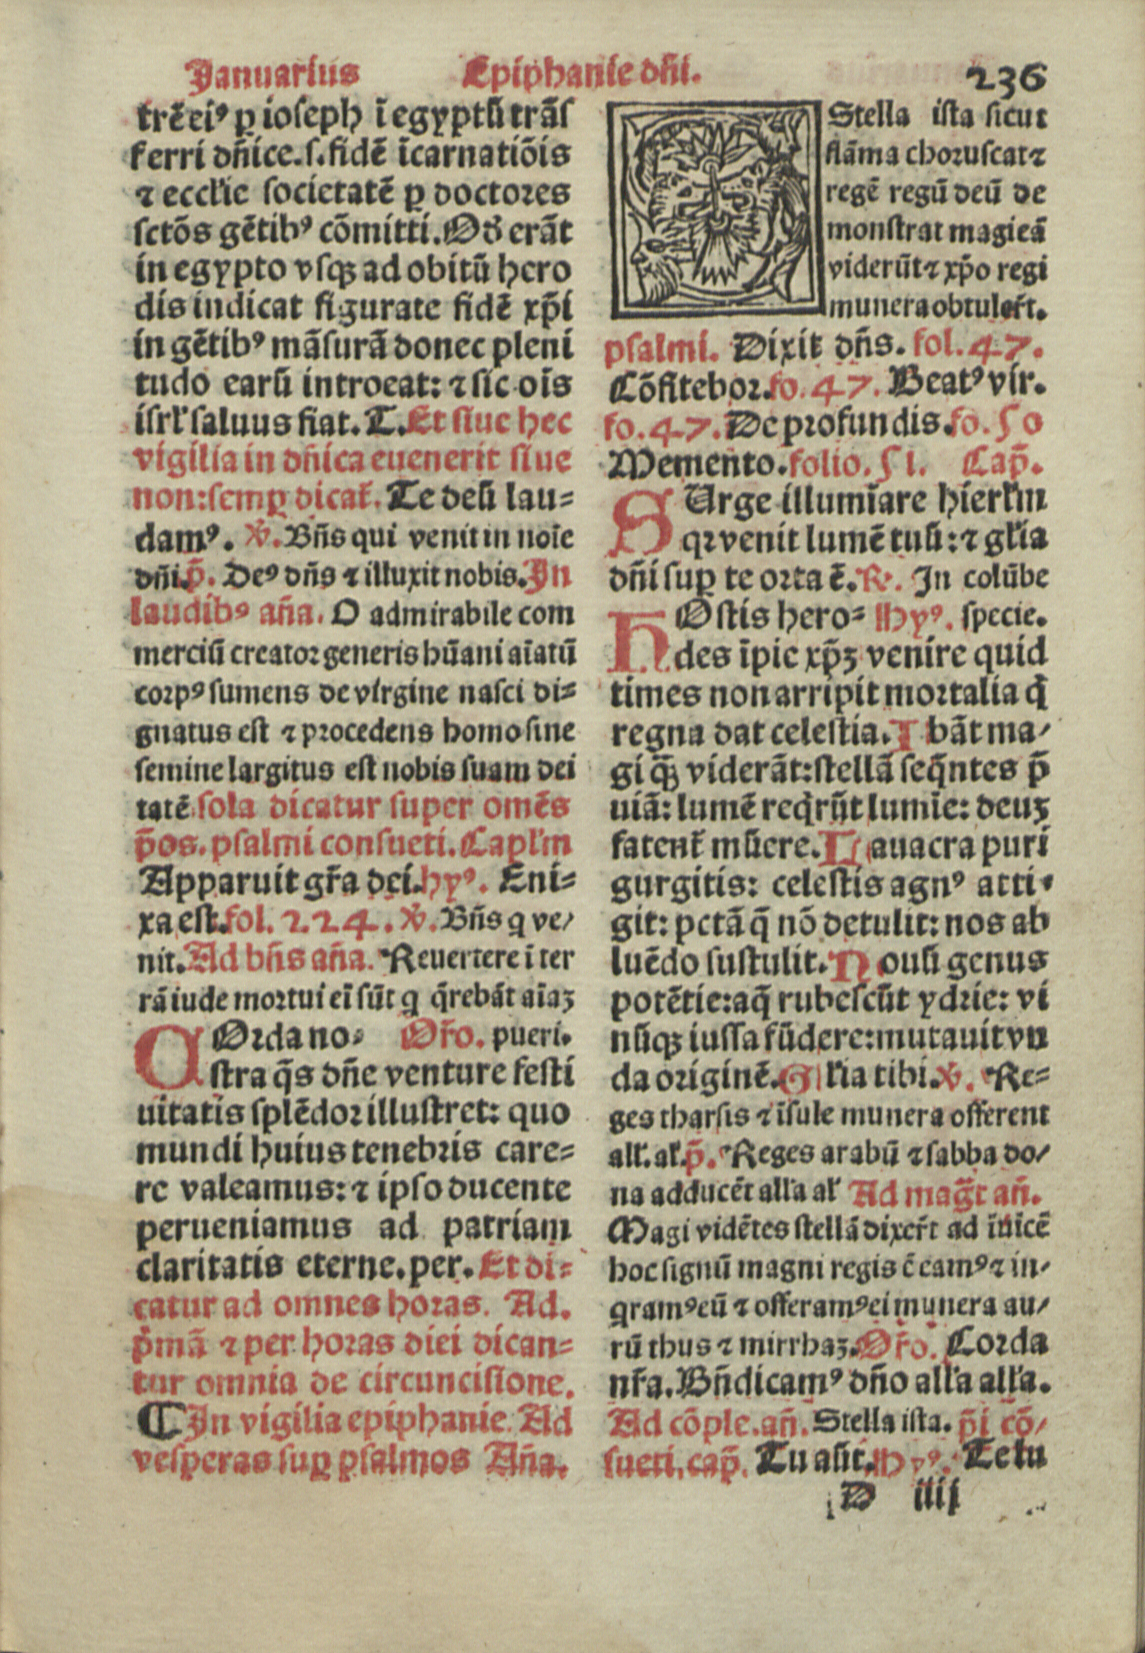 Januarius Epiphanie dñi. 236
trē ei⁹ ꝑ ioseph ī egyptū trãs
ferri dñice.s.fidē īcarnatiōis
⁊ ecclie societatē ꝑ doctores
sctōs gētib⁹ cōmitti. Qď erãt
in egypto vsqꝫ ad obitū hero
dis indicat figurate fidē xp̄i
in gētib⁹ mãsurã donec pleni
tudo earū introeat: ⁊ sic oīs
isrl' saluus fiat. T. Et siue hec
vigilia in dñica euenerit siue
non: semꝑ dicat̄. Te deū lau=
dam⁹. ℣. Bñs qui venit in noīe
dñi. p̄. De⁹ dñs ⁊ illuxit nobis. In
laudib⁹ aña. O admirabile com
merciū creator generis hūani aīatū
corp⁹ sumens de virgine nasci di=
gnatus est ⁊ procedens homo sine
semine largitus est nobis suam dei
tatē. sola dicatur super omēs
p̄os. psalmi consueti. Capl'm
Apparuit gr̄a dei. hy⁹. Eni=
xa est. fol. 224. ℣. Bñs q ve/
nit. Ad bñs aña. Reuertere ī ter
rã iude mortui eī sūt q q̄rebãt aīaꝫ
COrda no= Or̄o. pueri.
stra q̄s dñe venture festi
uitatis splēdor illustret: quo
mundi huius tenebris care=
re valeamus: ⁊ ipso ducente
perueniamus ad patriam
claritatis eterne. per. Et di=
catur ad omnes horas. Ad.
p̄mã ⁊ per horas diei dican=
tur omnia de circuncisione.
¶ In vigilia epiphanie. Ad
vesperas suꝑ psalmos Aña.
Stella ista sicut
flãma choruscat ⁊
regē regū deū de
monstrat magi eã
viderūt ⁊ xp̄o regi
munera obtuler̄t.
psalmi. Dixit dñs. fol. 47.
Cōfitebor. fo. 47. Beat⁹ vir.
fo. 47. De profundis. fo. 50
Memento. folio. 51. Cap̄.
SUrge illumīare hierl'm
qꝛ venit lumē tuū: ⁊ gl'ia
dñi suꝑ te orta ē. ℟. In colūbe
HOstis hero= Hy⁹. specie.
des īpie xp̄ꝫ venire quid
times non arripit mortalia q̄
regna dat celestia. I bãt ma/
gi qꝫ viderãt: stellã seq̄ntes p̄
uiã: lumē req̄rūt lumīe: deuꝫ
fatent̄ mūere. L auacra puri
gurgitis: celestis agn⁹ atti=
git: pctã q̄ nō detulit: nos ab
luēdo sustulit. N ouū genus
potētie: aq̄ rubescūt ydrie: vi
nūqꝫ iussa fūdere: mutauit vn
da originē. G l'ia tibi. ℣. Re=
ges tharsis ⁊ īsule munera offerent
all'. al'. p̄. Reges arabū ⁊ sabba do/
na adducēt all'a al' Ad mag̃t añ.
Magi vidētes stellã dixer̄t ad īuicē
hoc signū magni regis ē eam⁹ ⁊ in=
qram⁹ eū ⁊ offeram⁹ ei munera au/
rū thus ⁊ mirrhaꝫ. Or̄o. Corda
nr̄a. Bñdicam⁹ dño all'a all'a.
Ad cōple. añ. Stella ista. p̄i cō/
sueti. cap̄. Tu aūt. Hy⁹. Te lu
D iiij